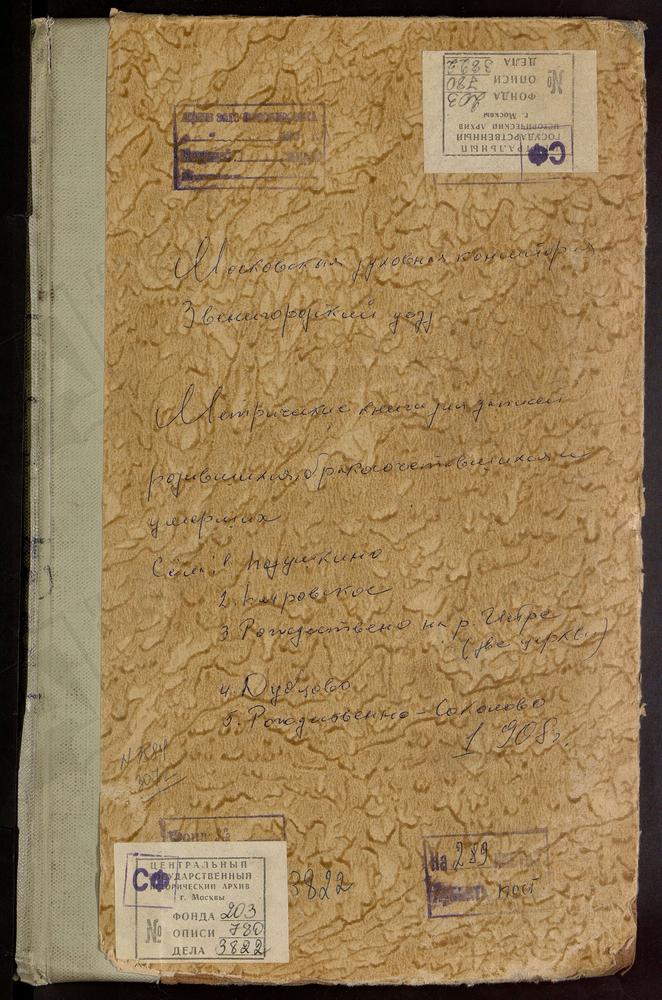 ЦЕНТРАЛЬНЫЙ
ГОСУДАРСТВЕННЫЙ
ИСТОРИЧЕСКИЙ АРХИВ
г. Москвы
СФ
№
ФОНДА 203
ОПИСИ 780
ДЕЛА 3822
Московская духовная консистория
Звенигородский уезд
Метрические книги для записей
родившихся, бракосочетавшихся и
умерших
Сёл: 1. Подушкино
2. Петровское
3. Рождествено на р. Истре
(две церкви)
4. Дубцово
5. Рождественно-Соколово
1908г.
Фонд №
3822
ЦЕНТРАЛЬНЫЙ
ГОСУДАРСТВЕННЫЙ
ИСТОРИЧЕСКИЙ АРХИВ
г. Москвы
СФ
№
ФОНДА 203
ОПИСИ 780
ДЕЛА 3822
На 289